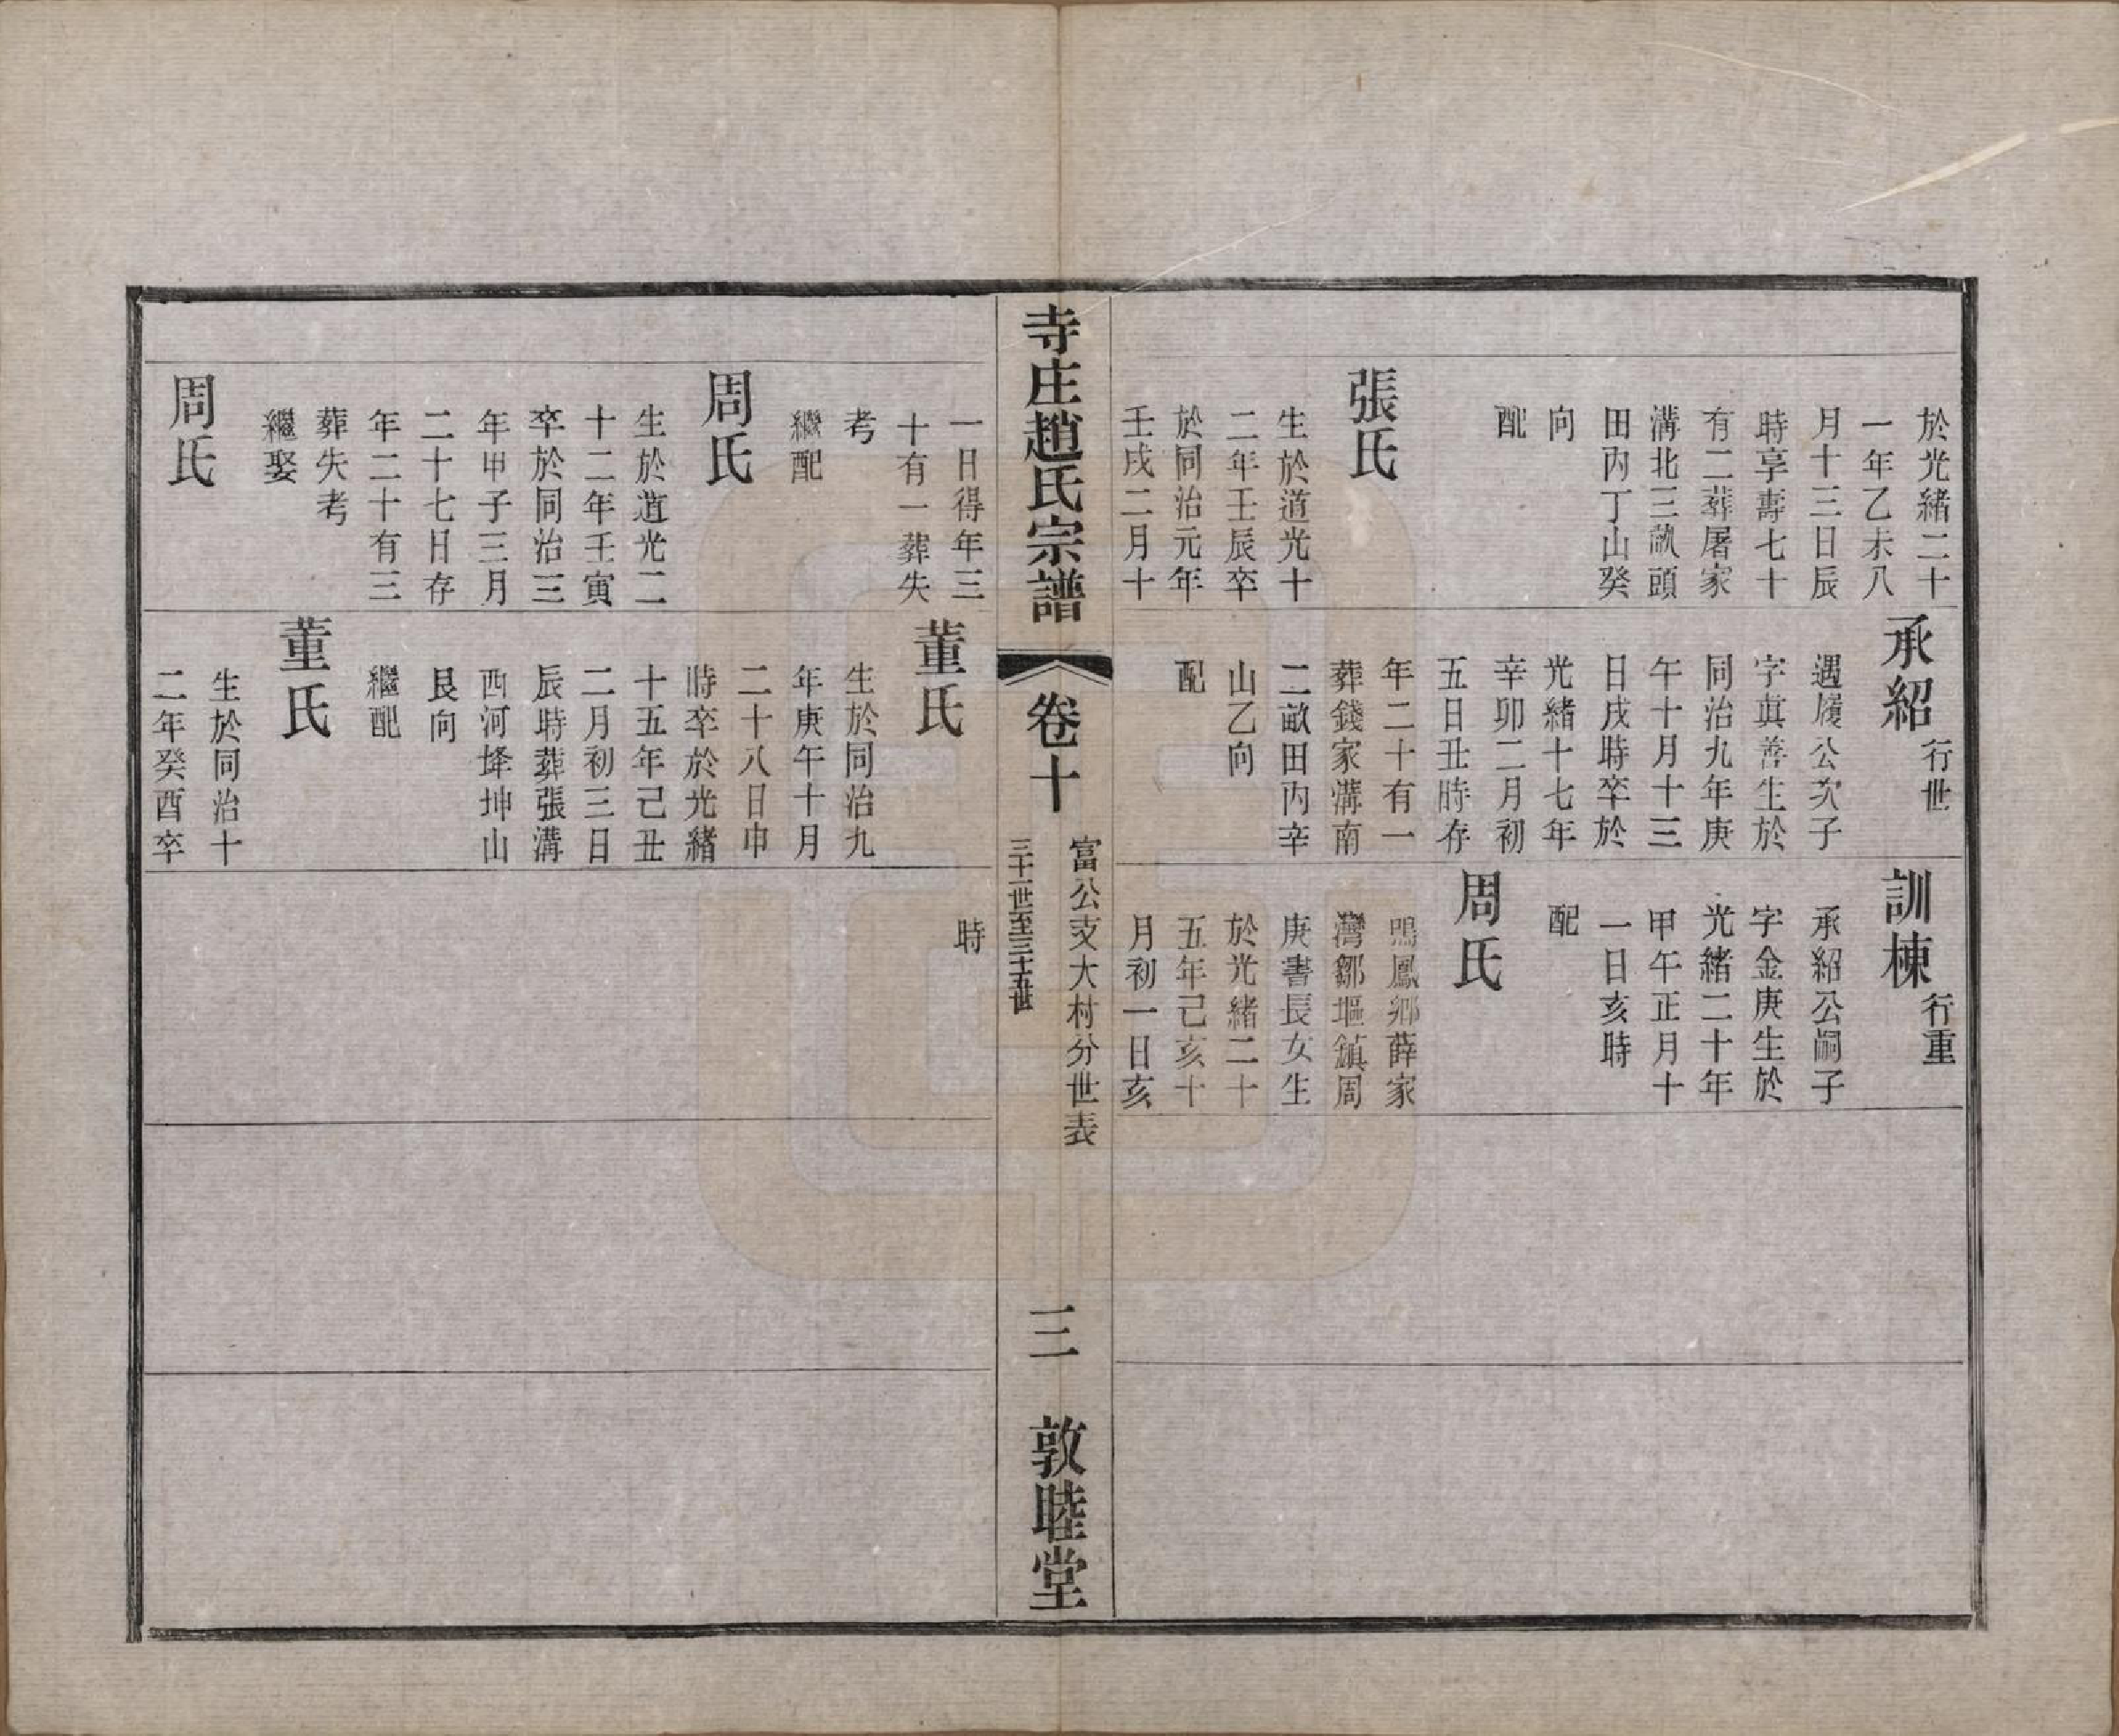 於光緒二十
一年乙未八
月十三日辰
時享壽七十
有二葬屠家
溝北三畝頭
田內丁山癸
向
配
張氏
生於道光十
二年壬辰卒
於同治元年
壬戌二月十
承紹 行世
遇履公次子
字真善生於
同治九年庚
午十月十三
日戌時卒於
光緒十七年
辛卯二月初
五日丑時存
年二十有一
葬錢家溝南
二畝田內辛
山乙向
配
訓棟 行重
承紹公嗣子
字金庚生於
光緒二十年
甲午正月十
一日亥時
配
周氏
鳳鄉薛家
灣鄒區鎮周
庚書長女生
於光緒二十
五年己亥十
月初一日亥
寺庄趙氏宗譜
卷十
富公支大村分世表
三十一世至三十五世
三
敦睦堂
一日得年三
十有一葬失
考
繼配
周氏
生於道光二
十二年壬寅
卒於同治三
年甲子三月
二十七日存
年二十有三
葬失考
繼娶
周氏
董氏
生於同治九
年庚午十月
二十八日申
時卒於光緒
十五年己丑
二月初三日
辰時葬張溝
西河坤山
艮向
繼配
董氏
生於同治十
二年癸酉卒
時